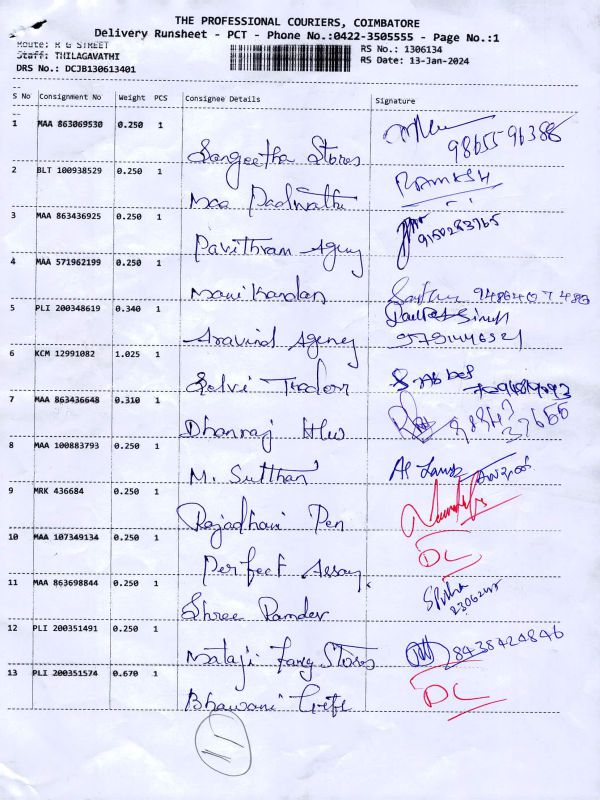 THE PROFESSIONAL COURIERS, COIMBATORE
Delivery Runsheet - PCT - Phone No.:0422-3505555 - Page No.:1
Route: R G STREET RS No.: 1306134
Staff: THILAGAVATHI RS Date: 13-Jan-2024
DRS No.: DCJB130613401
S No Consignment No Weight PCS Consignee Details Signature
1 MAA 863069530 0.250 1
Sangeetha Stores 98655-96388
2 BLT 100938529 0.250 1 RAMKSH
Maa Padwathi
3 MAA 863436925 0.250 1 9150283765
Pavithram Agency
4 MAA 571962199 0.250 1
Manikandan
5 PLI 200348619 0.340 1 Singh
Aravind Agency
6 KCM 12991082 1.025 1
Selvi Trader
7 MAA 863436648 0.310 1
Dhanraj H/w
8 MAA 100883793 0.250 1
M. Sutthar
9 MRK 436684 0.250 1
Rajadhani Pen
10 MAA 107349134 0.250 1 DC
Perfect Assay
11 MAA 863698844 0.250 1
Shree Ramdev
12 PLI 200351491 0.250 1 8438424846
Mataji Fancy Stores
13 PLI 200351574 0.670 1 DC
Bhawani Gift